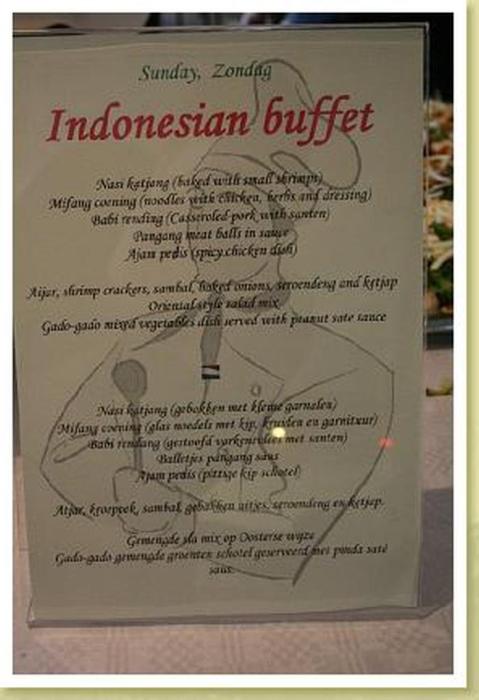 Sunday, Zondag
Indonesian buffet
Nasi katjang (baked with small shrimps)
Mifang coening (noodles with chicken, herbs and dressing)
Babi rending (Casseroled pork with santen)
Pangang meat balls in sauce
Ajam pedis (spicy chicken dish)
Atjar, shrimp crackers, sambal, baked onions, seroendeng and ketjap
Oriental style salad mix
Gado-gado mixed vegetables dish served with peanut sate sauce
Nasi katjang (gebakken met kleine garnalen)
Mifang coening (glas noedels met kip, kruiden en garnituur)
Babi rendang (gestoofd varkensvlees met santen)
Balletjes pangang saus
Ajam pedis (pittige kip schotel)
Atjar, kroepoek, sambal, gebakken uitjes, seroendeng en ketjap.
Gemengde sla mix op Oosterse wijze
Gado-gado gemengde groenten schotel geserveerd met pinda saté
saus.